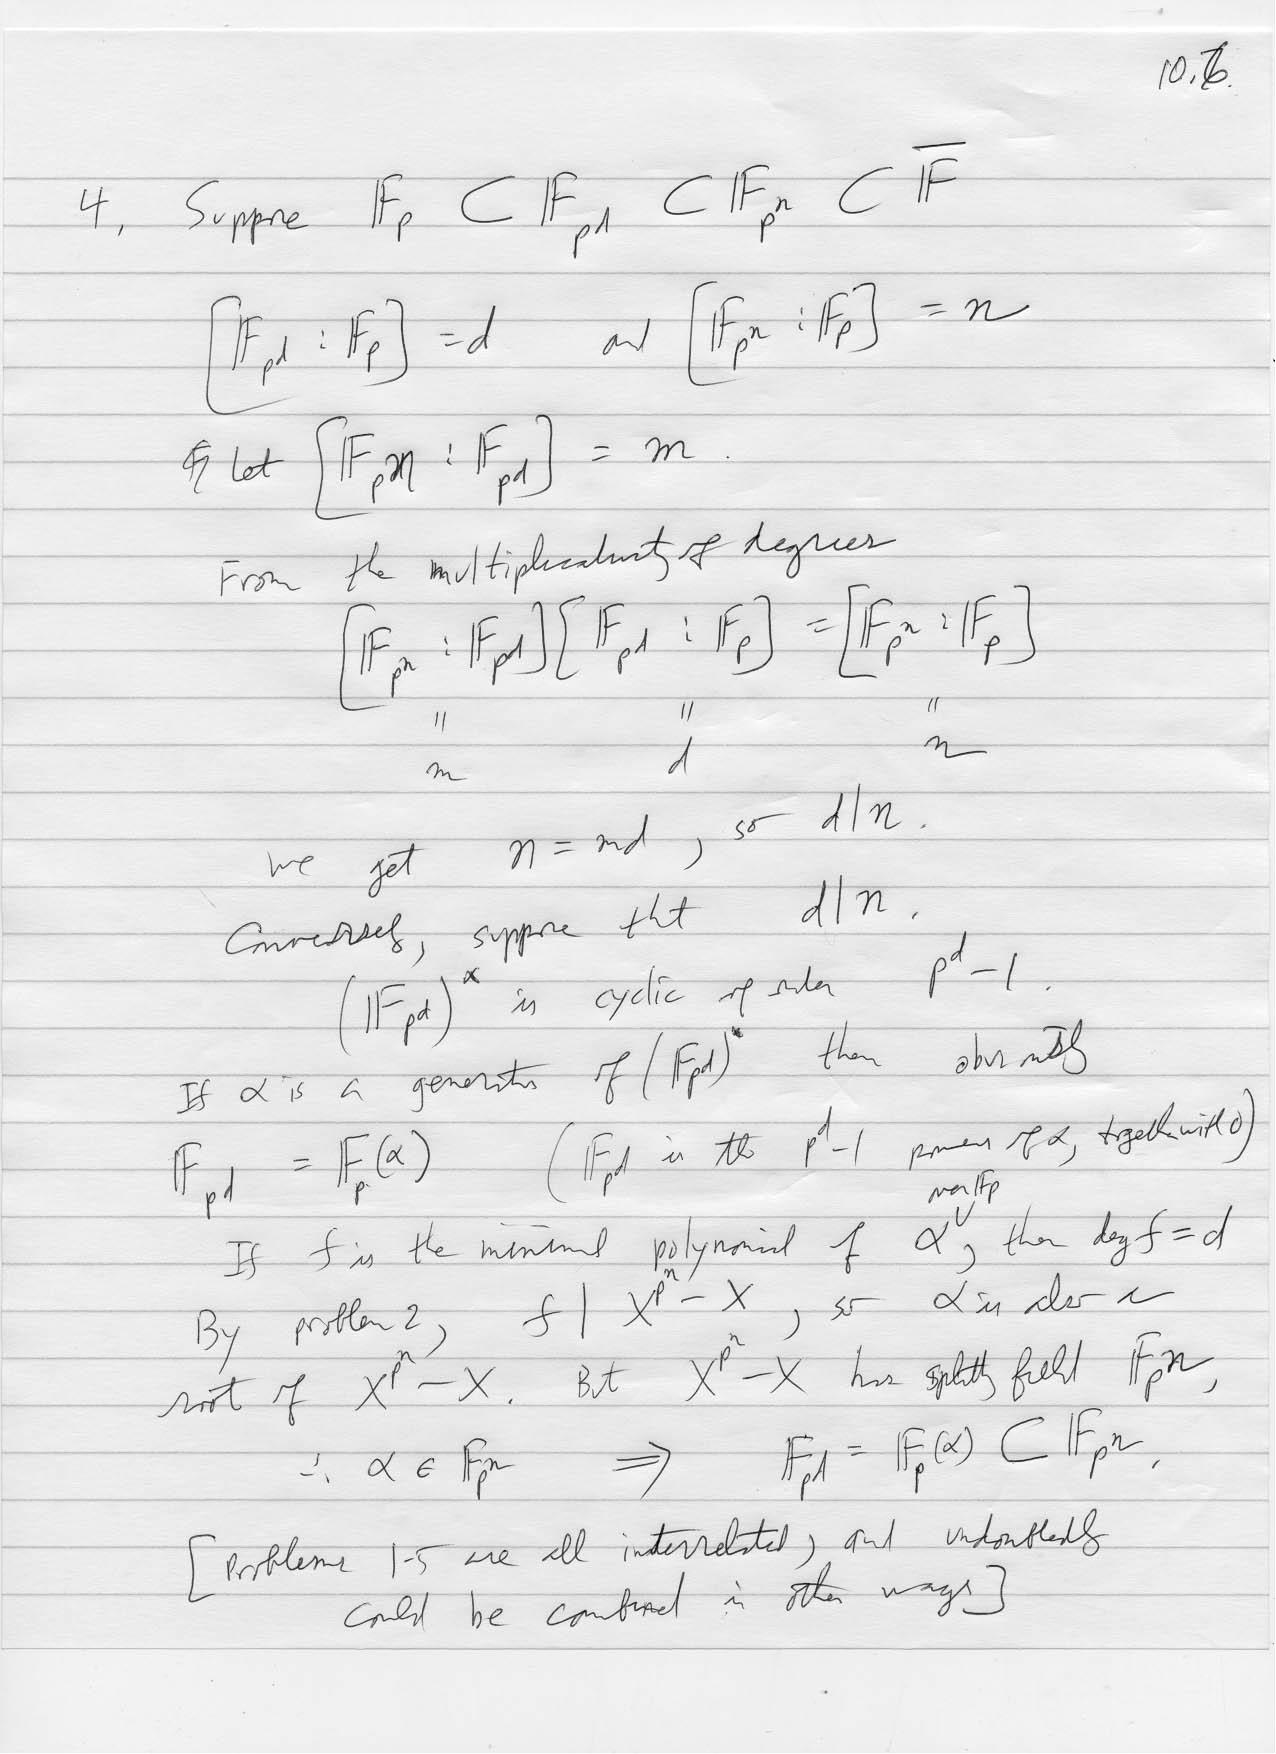 10.6.
4. Suppose 𝔽_p ⊂ 𝔽_{p^d} ⊂ 𝔽_{p^n} ⊂ \overline{𝔽}
[𝔽_{p^d} : 𝔽_p] = d and [𝔽_{p^n} : 𝔽_p] = n
Let [𝔽_{p^n} : 𝔽_{p^d}] = m.
From the multiplicativity of degrees
[𝔽_{p^n} : 𝔽_{p^d}] [𝔽_{p^d} : 𝔽_p] = [𝔽_{p^n} : 𝔽_p]
" " "
m d n
we get n = md, so d|n.
Conversely, suppose tht d|n.
(𝔽_{p^d})^× is cyclic of order p^d - 1.
If α is a generator of (𝔽_{p^d})^× then obviously
𝔽_{p^d} = 𝔽_p(α) (𝔽_{p^d} is the p^d - 1 powers of α, together with 0)
over 𝔽_p
If f is the minimal polynomial of α, then deg f = d
By problem 2, f | X^{p^n} - X, so α is also a
root of X^{p^n} - X. But X^{p^n} - X has splitting field 𝔽_{p^n},
∴ α ∈ 𝔽_{p^n} ⇒ 𝔽_{p^d} = 𝔽_p(α) ⊂ 𝔽_{p^n}.
[Problems 1-5 are all interrelated, and undoubtedly
could be combined in other ways]